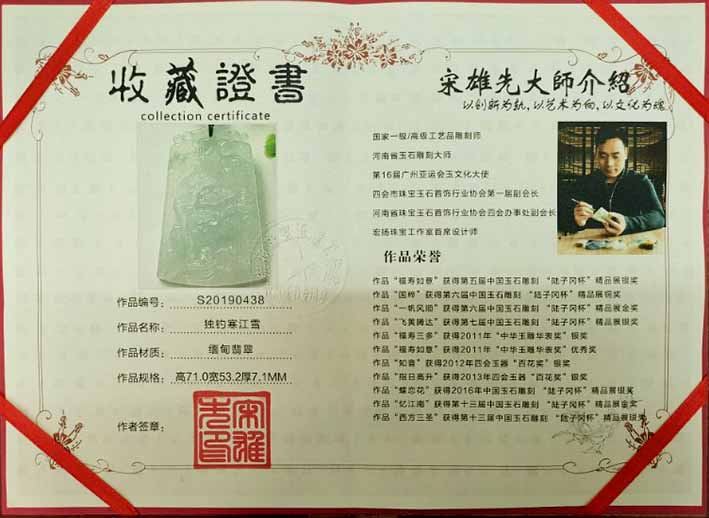 收藏證書
collection certificate
作品编号: S20190438
作品名称: 独钓寒江雪
作品材质: 缅甸翡翠
作品规格: 高71.0宽53.2厚7.1MM
作者签章:
宋雄先印
宋雄先大師介紹
以创新为轨、以艺术为向、以文化为魂
国家一级/高级工艺品雕刻师
河南省玉石雕刻大师
第16届广州亚运会玉文化大使
四会市珠宝玉石首饰行业协会第一届副会长
河南省珠宝玉石首饰行业协会四会办事处副会长
宏扬珠宝工作室首席设计师
作品荣誉
作品“福寿如意”获得第五届中国玉石雕刻 “陆子冈杯”精品展银奖
作品“国粹”获得第六届中国玉石雕刻 “陆子冈杯”精品展铜奖
作品“一帆风顺”获得第六届中国玉石雕刻 “陆子冈杯”精品展金奖
作品“飞黄腾达”获得第七届中国玉石雕刻 “陆子冈杯”精品展银奖
作品“福寿三多”获得2011年“中华玉雕华表奖”银奖
作品“福寿如意”获得2011年“中华玉雕华表奖”优秀奖
作品“知音”获得2012年四会玉器 “百花奖”银奖
作品“指日高升”获得2013年四会玉器 “百花奖”银奖
作品“蝶恋花”获得2016年中国玉石雕刻 “陆子冈杯”精品展银奖
作品“忆江南”获得第十三届中国玉石雕刻 “陆子冈杯”精品展金奖
作品“西方三圣”获得第十三届中国玉石雕刻 “陆子冈杯”精品展银奖